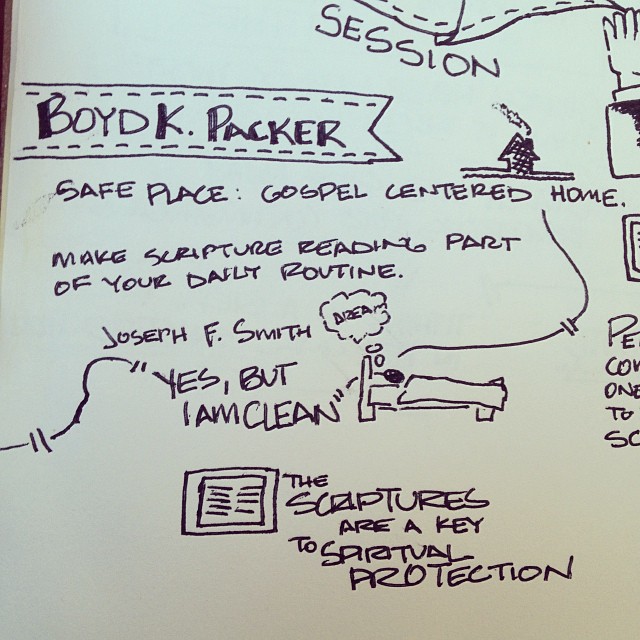 SESSION
BOYD K. PACKER
SAFE PLACE: GOSPEL CENTERED HOME.
MAKE SCRIPTURE READING PART
OF YOUR DAILY ROUTINE.
JOSEPH F. SMITH
DREAM
"YES, BUT
I AM CLEAN"
THE
SCRIPTURES
ARE A KEY
TO SPIRITUAL
PROTECTION
ONE
TO